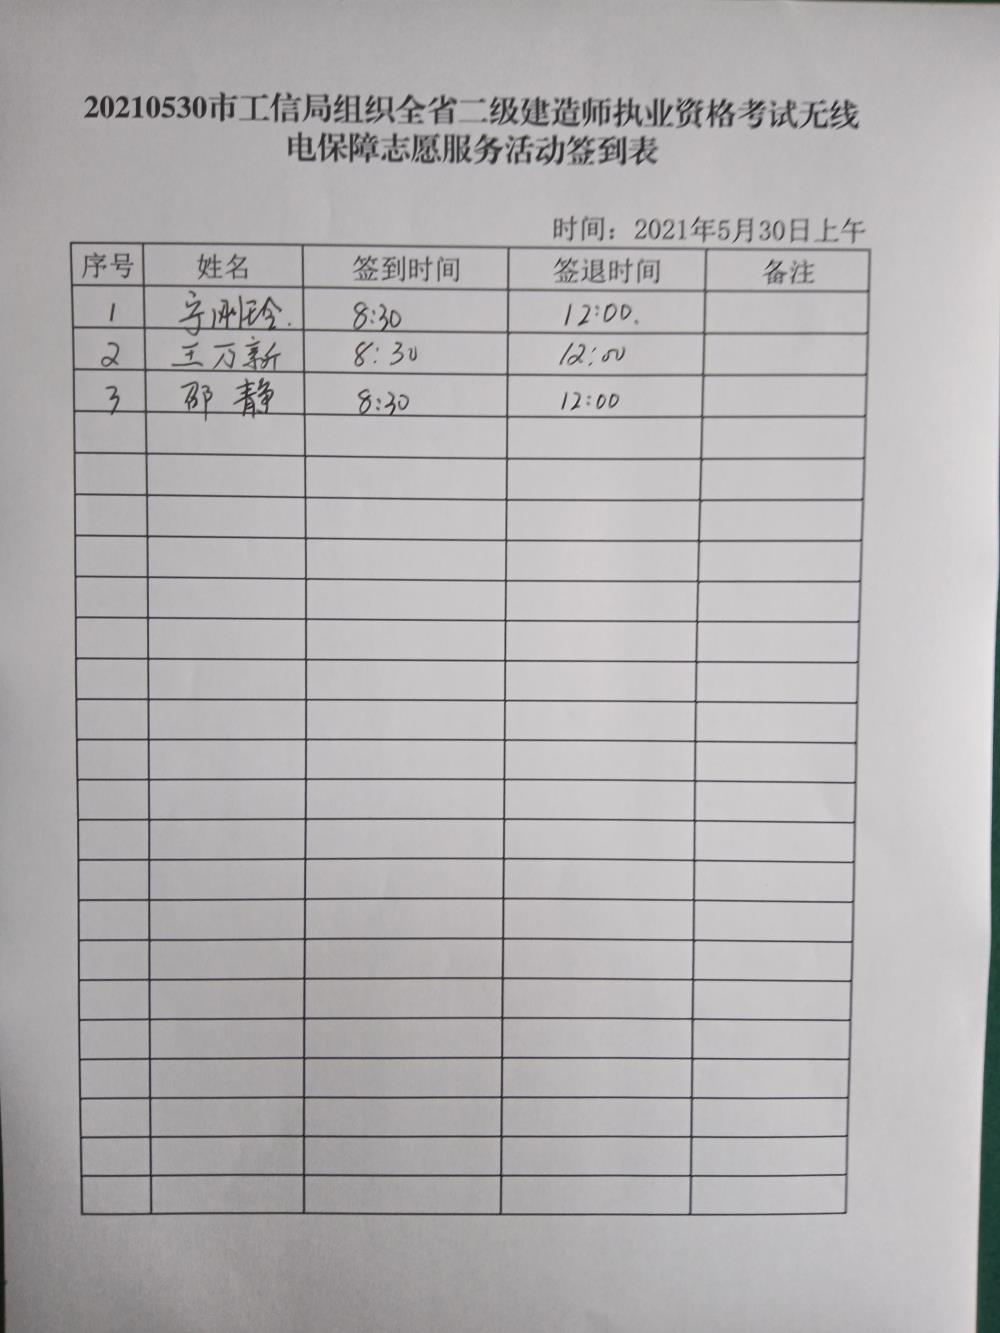 20210530市工信局组织全省二级建造师执业资格考试无线
电保障志愿服务活动签到表
时间：2021年5月30日上午
序号 姓名 签到时间 签退时间 备注
1 宁刚玲. 8:30 12:00.
2 王万新 8:30 12:00
3 邵静 8:30 12:00